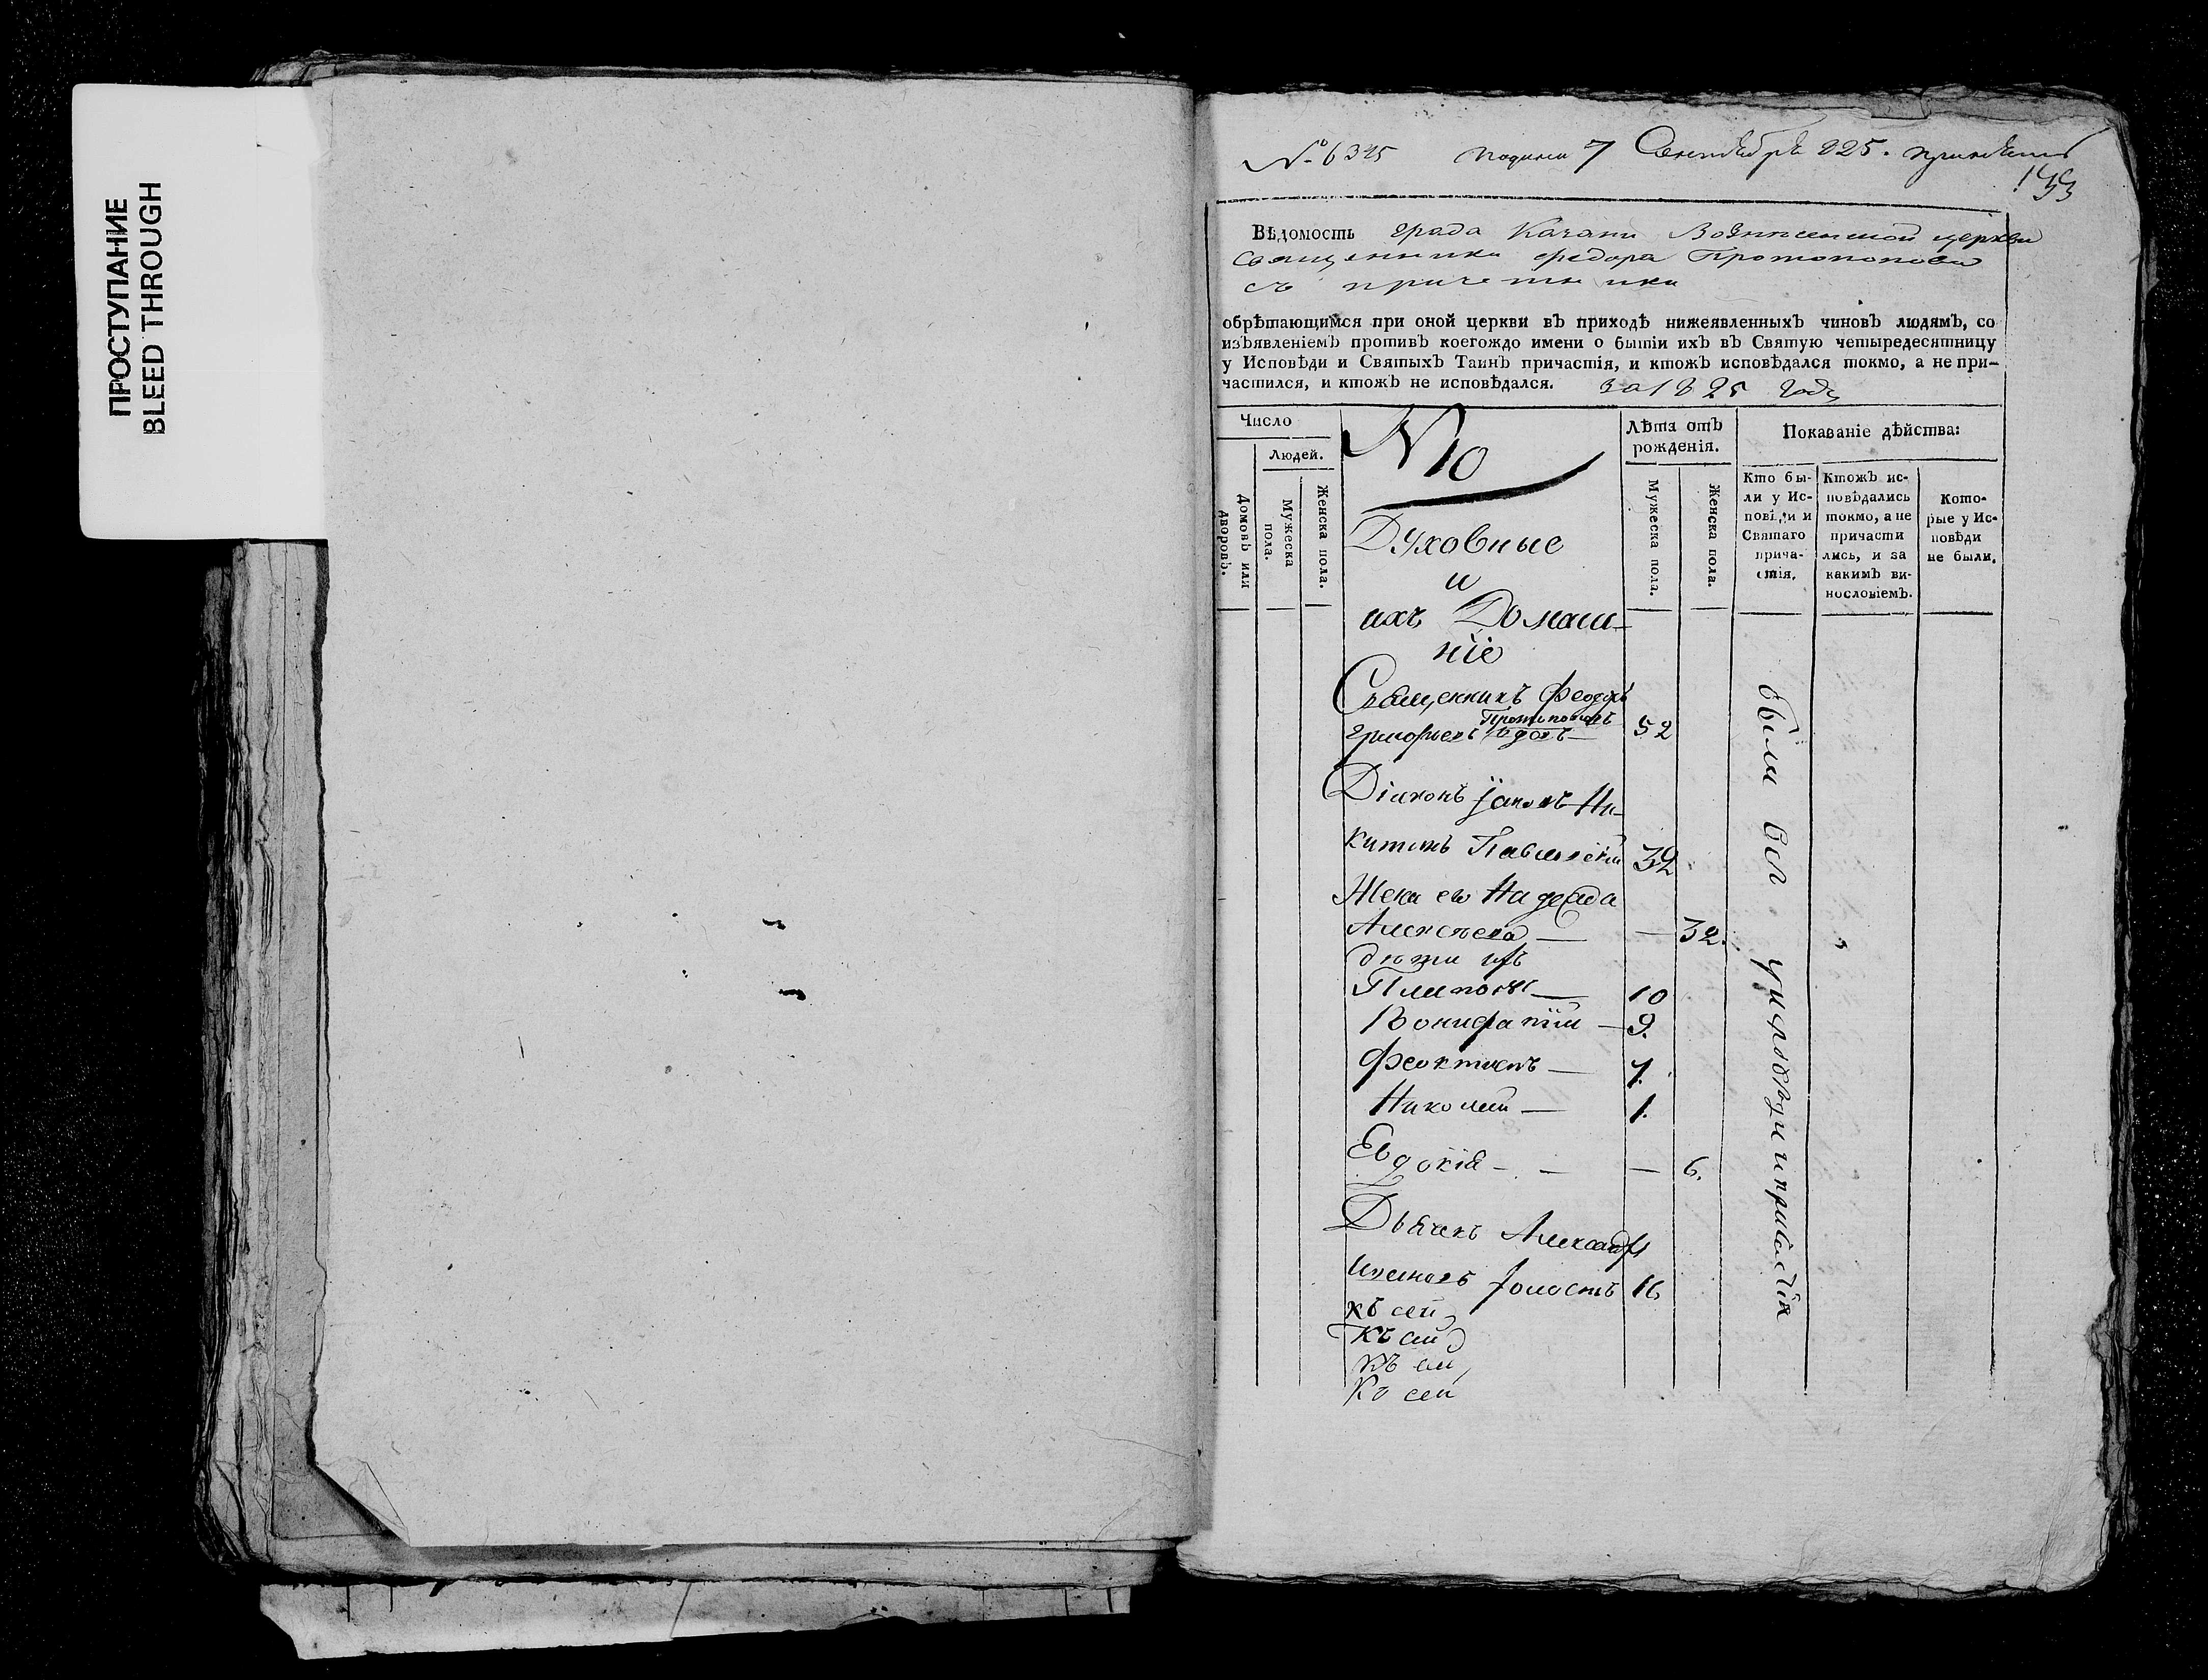 ПРОСТУПАНИЕ
BLEED THROUGH
№ 6345 7 Сентября 825.
Вѣдомость града Казани Вознесенской церкви
священника Федора Протопопова
съ причетники
обрѣтающимся при оной церкви въ приходѣ нижеявленныхъ чиновъ людямъ, со
изъявленіемъ противъ коегождо имени о бытіи ихъ въ Святую четыредесятницу
у Исповѣди и Святыхъ Таинъ причастія, и ктожъ исповѣдался токмо, а не при-
частился, и ктожъ не исповѣдался. за 1825 годъ
Число
Людей.
Домовъ или
дворовъ.
Мужеска
пола.
Женска пола.
№ 10
Лѣта отъ
рожденія.
Мужеска пола.
Женска пола.
Показаніе дѣйства:
Кто бы-
ли у Ис-
повѣди и
Святаго
прича-
стія.
Ктожъ ис-
повѣдались
токмо, а не
причасти
лись, и за
какимъ ви-
нословіемъ.
Кото-
рые у Ис-
повѣди
не были.
Духовные
и
ихъ Домаш-
ніе
Священникъ Феодоръ
Протопоповъ
Григорьевъ вдовъ — 52
Діаконъ Іаковъ Ни-
китинъ 32
Жена его Надежда
Алексеева — — 32.
дѣти ихъ
Платонъ — 10
Вонифатій — 9.
Феоктистъ — 7.
Николай — 1.
Евдокія — — — 6.
Дьячекъ Александръ
холостъ 16
къ сей
къ сей
къ сей
Ко сей
были вси у исповѣди и причастія